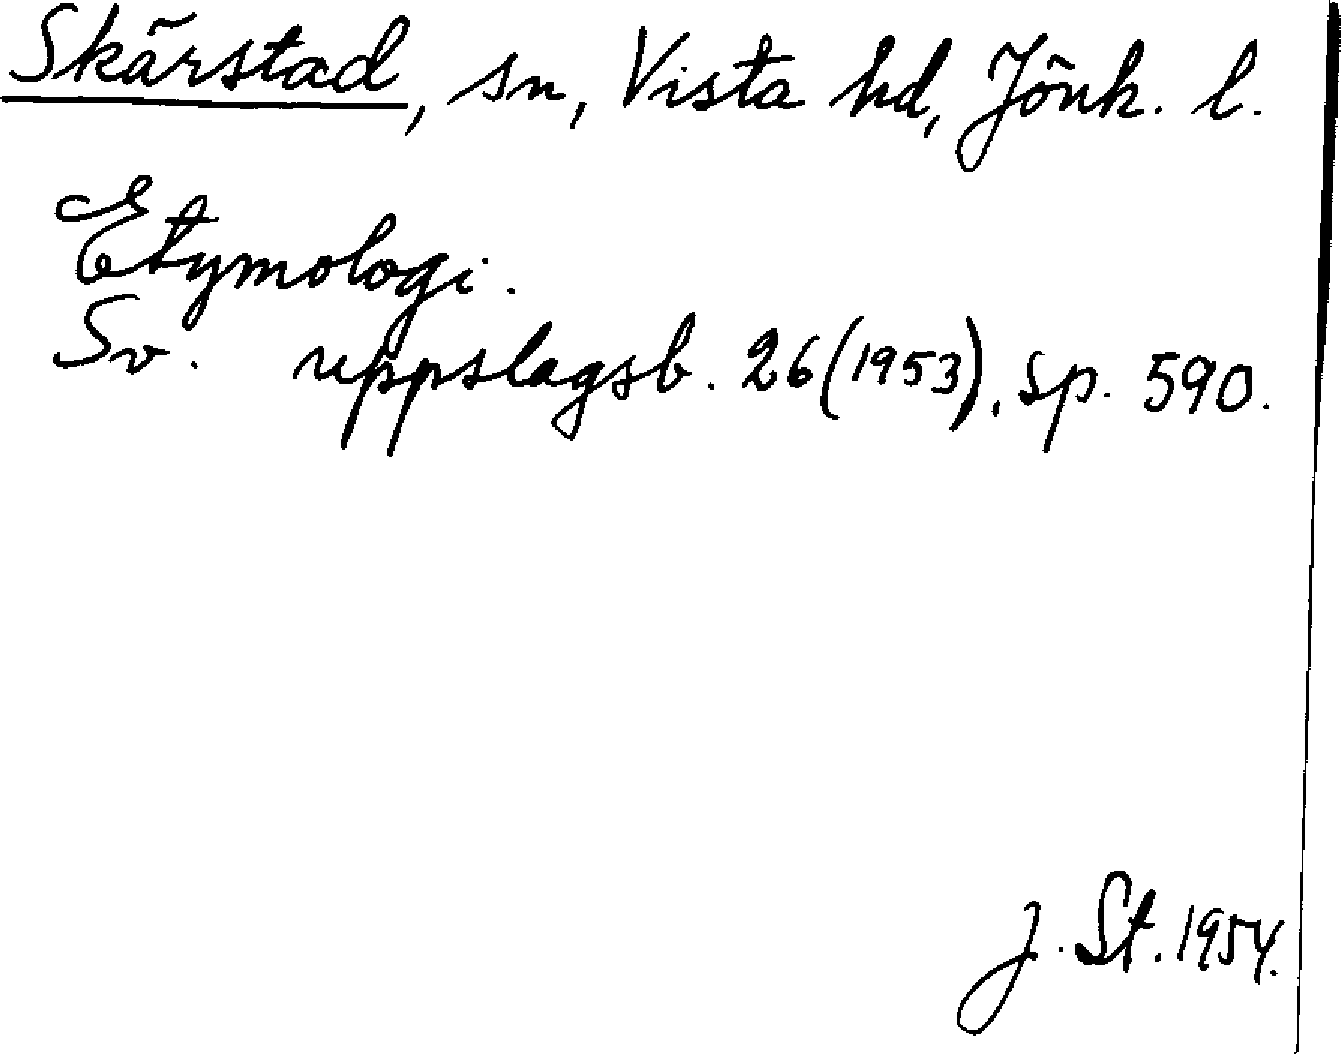 Skärstad, sn, Vista hd, Jönk. l.
Etymologi.
Sv. uppslagsb. 26 (1953), sp. 590.
J. St. 1954.